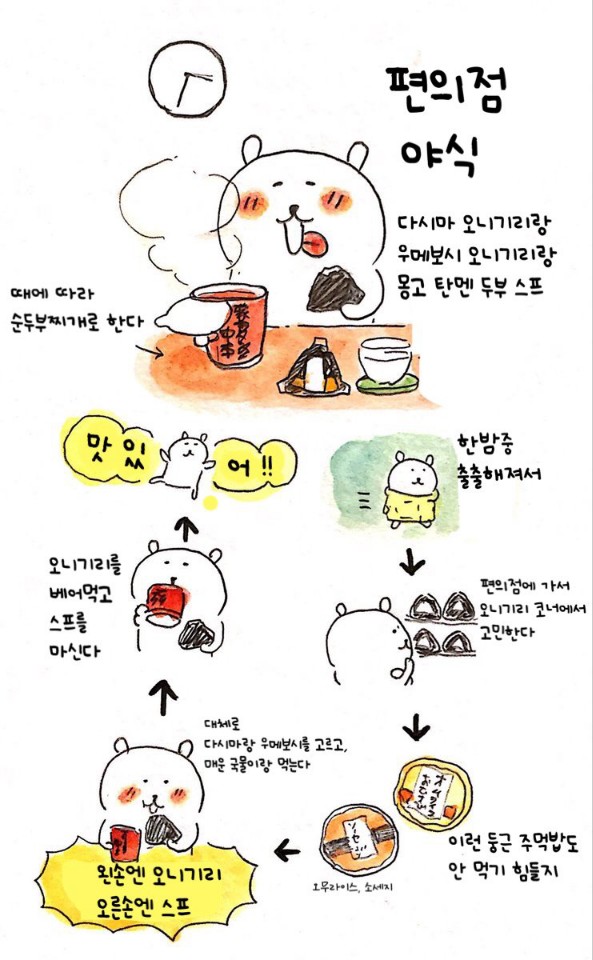 편의점
야식
다시마 오니기리랑
우메보시 오니기리랑
몽고 탄멘 두부 스프
때에 따라
순두부찌개로 한다
맛있
어!!
한밤중
출출해져서
편의점에 가서
오니기리 코너에서
고민한다
이런 둥근 주먹밥도
안 먹기 힘들지
오무라이스, 소세지
대체로
다시마랑 우메보시를 고르고,
매운 국물이랑 먹는다
왼손엔 오니기리
오른손엔 스프
오니기리를
베어먹고
스프를
마신다